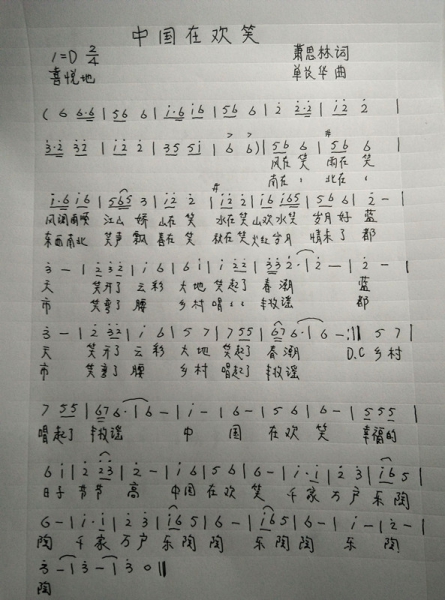 中国在欢笑
1=D 2/4 萧思林 词
喜悦地 单长华 曲
( 6 6·6 | 5 6 6 | i·6 i 6 | 5 6 6 | 2 2·2 | i 2 2 |
3·2 3 2 | i 2 2 | 3 5 5 i | 6 6 ) | 5 6 6 | 5 6 6 |
风在 笑 雨在 笑
南在 北在
i·6 i 6 | 5 6 5 3 | i 2 2 | i 2 2 | i 6 i 6 5 | 5 6 6 | 2 - |
风调雨顺 江山 娇 山在 笑 水在笑 山欢水笑 岁月 好 蓝
东西南北 笑声 飘 春在 笑 秋在笑 岁月 情未 了 都
3 - | 2 3 2 | i 6 | 6 i | i 2 2 | 3 3 2 | 2 - | 2 - |
天 笑开了 云彩 大地 笑起了 春潮 蓝
市 笑弯了 腰 乡村 唱 丰收谣 都
3 - | 2 3 2 | i 6 | 5 7 | 7 5 5 | 6 7 6·i | 6 - :|| 5 7 |
天 笑开了 云彩 大地 笑起了 春潮 D.C 乡村
市 笑弯了 腰 乡村 唱起了 丰收谣
7 5 5 | 6 7 6·i | 6 - | i - | i 6 - | 5 6 | 6 - | 5 5 5 |
唱起了 丰收谣 中 国 在欢 笑 幸福的
6 i | 2 2 3 | 2 - | i 6 | 5 6 | 6 - | i·i | 2 3 | i 6 5 |
日子 节节 高 中国 在欢 笑 千家 万户 乐陶
6 - | i·i | 2 3 | i 6 5 | 6 - | i 6 5 | 6 - | i - | 2 - |
陶 千家 万户 乐陶 陶 乐陶 陶 乐 陶
3 - | 3 - | 3 0 ||
陶